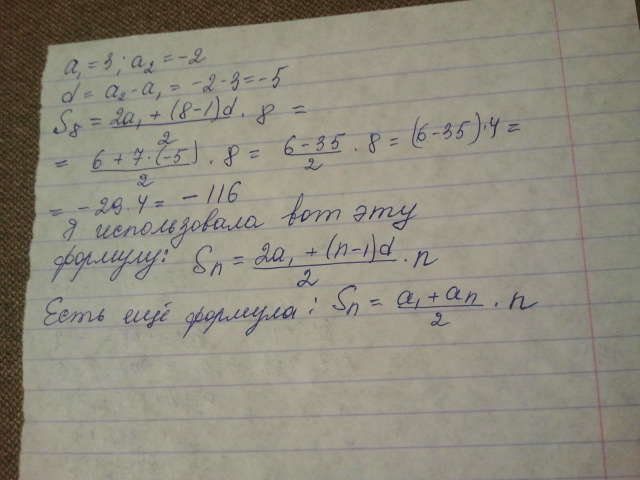 a₁ = 3; a₂ = -2
d = a₂ - a₁ = -2 - 3 = -5
S₈ = (2a₁ + (8-1)d)/2 · 8 =
= (6 + 7·(-5))/2 · 8 = (6 - 35)/2 · 8 = (6-35)·4 =
= -29·4 = -116
Я использовала вот эту
формулу: Sₙ = (2a₁ + (n-1)d)/2 · n
Есть ещё формула: Sₙ = (a₁ + aₙ)/2 · n